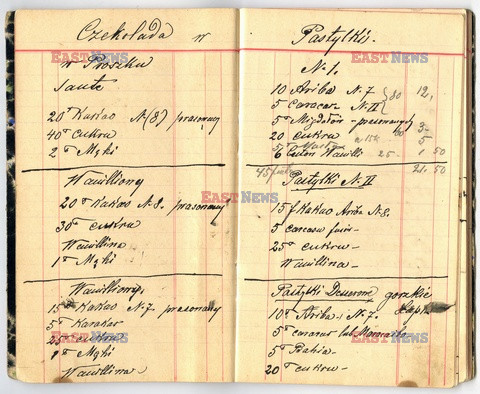 Czekolada w
w Proszku
Saute
20 ℔ Kakao N. (8) prasowany
40 ℔ cukru
2 ℔ Mąki
Waniliowy
20 ℔ Kakao N. 8. prasowany
30 ℔ cukru
Wanillina
1 ℔ Mąki
Waniliowy.
15 ℔ Kakao N. 7. prasowany
5 ℔ Karakas
cukru
1 ℔ Mąki
Wanillina
Pastylki.
N. 1.
10 Ariba N. 7 12.
5 caracas N. II 80
5 Migdałów 3-
20 cukru 5-
6 Wanilli 25. 1 50
45 21. 50
Pastylki N. II
15 ℔ Kakao Ariba N. 8.
5 caracas
25 ℔ cukru-
Wanillina-
Pastylki Deserowe gorzkie
10 ℔ Ariba-, N. 7.
5 ℔ caracas lub
5 ℔ Bahia-
20 ℔ cukru-
EAST NEWS
EAST NEWS
EAST NEWS
EAST NEWS
EAST NEWS
EAST NEWS